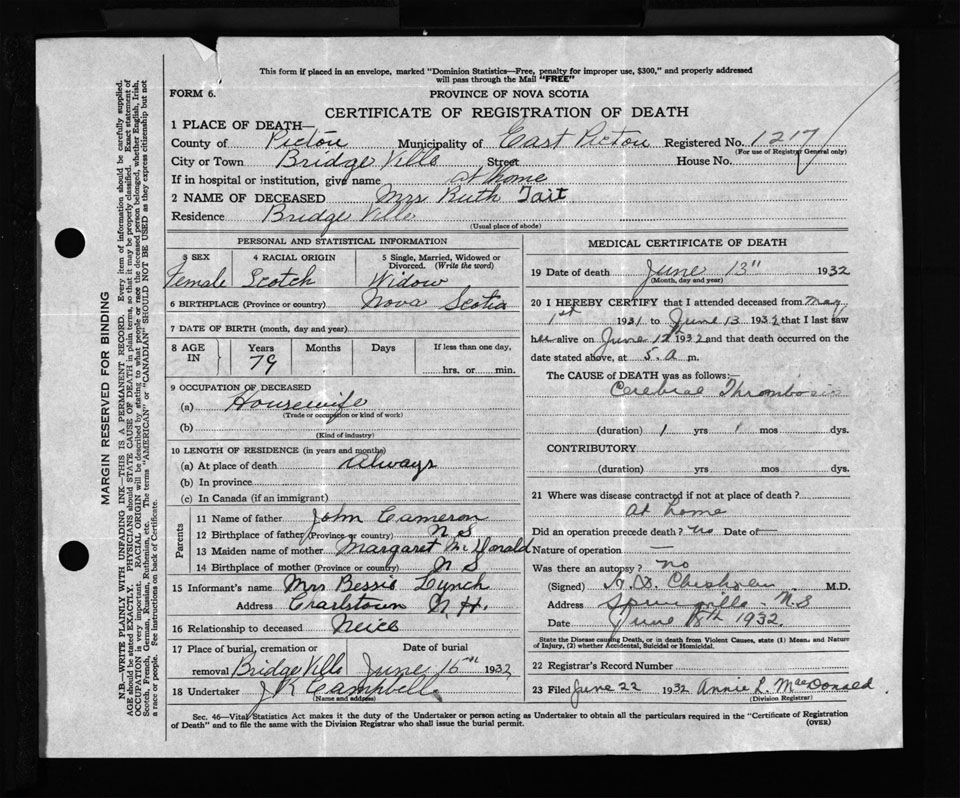 This form if placed in an envelope, marked "Dominion Statistics—Free, penalty for improper use, $300," and properly addressed
will pass through the Mail "FREE"
FORM 6.
PROVINCE OF NOVA SCOTIA
CERTIFICATE OF REGISTRATION OF DEATH
1 PLACE OF DEATH—
County of Pictou Municipality of East Pictou Registered No. 1217
(For use of Registrar General only)
City or Town Bridge Ville Street House No.
If in hospital or institution, give name at home
2 NAME OF DECEASED Mrs Ruth Tait
Residence Bridge Ville
(Usual place of abode)
PERSONAL AND STATISTICAL INFORMATION
3 SEX 4 RACIAL ORIGIN 5 Single, Married, Widowed or
Divorced. (Write the word)
Female Scotch Widow
6 BIRTHPLACE (Province or country) Nova Scotia
7 DATE OF BIRTH (month, day and year)
8 AGE IN Years Months Days If less than one day,
79 hrs. or min.
9 OCCUPATION OF DECEASED
(a) Housewife
(Trade or occupation or kind of work)
(b)
(Kind of industry)
10 LENGTH OF RESIDENCE (in years and months)
(a) At place of death Always
(b) In province
(c) In Canada (if an immigrant)
Parents
11 Name of father John Cameron
12 Birthplace of father (Province or country) N S
13 Maiden name of mother Margaret McDonald
14 Birthplace of mother (Province or country) N S
15 Informant's name Mrs Bessie Lynch
Address Charlstown N. H.
16 Relationship to deceased Neice
17 Place of burial, cremation or Date of burial
removal Bridge Ville June 16 1932
18 Undertaker J R Campbell
(Name and address)
MEDICAL CERTIFICATE OF DEATH
19 Date of death June 13" 1932
(Month, day and year)
20 I HEREBY CERTIFY that I attended deceased from May
1st 1931 to June 13 1932 that I last saw
her alive on June 12th 1932 and that death occurred on the
date stated above, at 5. a m.
The CAUSE of DEATH was as follows:—
Cerebral Thrombosis
(duration) 1 yrs 1 mos dys.
CONTRIBUTORY
(duration) yrs. mos. dys.
21 Where was disease contracted if not at place of death?
At home
Did an operation precede death? no Date of —
Nature of operation —
Was there an autopsy? no
(Signed) Chisholm M.D.
Address Springville N.S
Date June 1932.
State the Disease causing Death, or in death from Violent Causes, state (1) Means and Nature
of Injury, (2) whether Accidental, Suicidal or Homicidal.
22 Registrar's Record Number
23 Filed June 22 1932 Annie L. MacDonald
(Division Registrar)
Sec. 46—Vital Statistics Act makes it the duty of the Undertaker or person acting as Undertaker to obtain all the particulars required in the "Certificate of Registration
of Death" and to file the same with the Division Registrar who shall issue the burial permit.
(OVER)
MARGIN RESERVED FOR BINDING
N.B.—WRITE PLAINLY WITH UNFADING INK—THIS IS A PERMANENT RECORD. Every item of information should be carefully supplied.
AGE should be stated EXACTLY. PHYSICIANS should STATE CAUSE OF DEATH in plain terms, so that it may be properly classified. Exact statement of
OCCUPATION is very important. RACIAL ORIGIN will be described by stating to what people or race the deceased person belonged, whether English, Irish,
Scotch, French, German, Russian, Ruthenian, etc. The terms "AMERICAN" or "CANADIAN" SHOULD NOT BE USED as they express citizenship but not
a race or people. See instructions on back of Certificate.